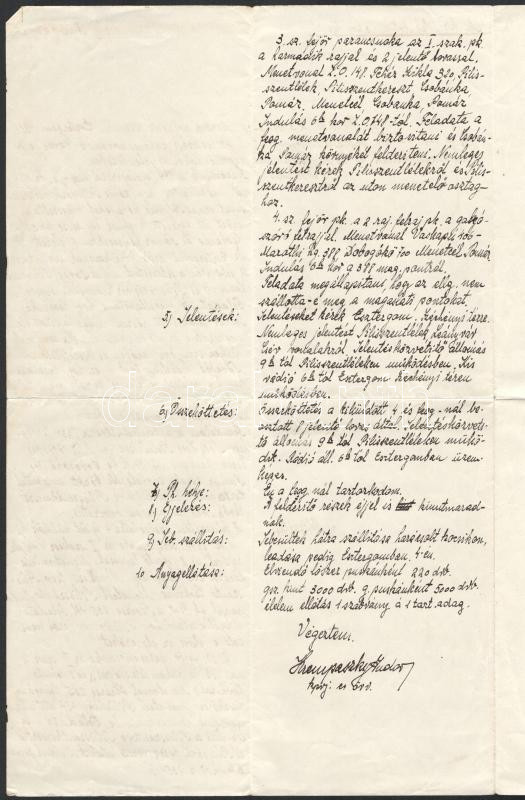 3. sz. fejőr parancsnoka az I. szak. pk.
a harmadik rajjal és 2 jelentő lovassal.
Menetvonal L.O. 148. Fehér 320 Pilis-
szentlélek, Pilisszentkereszt Csobánka,
Pomáz, Menetcél Csobánka, Pomáz
Indulás 6h kor L.O. 148-tól. Feladata a
fcsg. menetvonalát biztosítani és Csobán-
ka Pomáz környékét felderíteni. Nemleges
jelentést kérek Pilisszentlélekről és Pilis-
szentkeresztről az uton menetelő osztag-
hoz.
4. sz. fejőr pk. a 2 raj.
szóró féltrajjal. Menetvonal Vaskapu
Maróthi hg. 388 Dobogókő 700 Menetcél Pomáz
Indulás 6h kor a 388 mag. pontról.
Feladata megállapítani, hogy az ellg. nem
szállotta-e meg a magaslati pontokat.
5) Jelentések: Jelentéseket kérek Esztergom. Széchenyi térre.
Nemleges jelentést Pilisszentlélek Leányvár
vonalakról. Jelentésközvetítő állomás
9h tól Pilisszentléleken működésben. Kis
rádió 6h tól Esztergom Széchenyi téren
működésben.
6) Összeköttetés: Összeköttetés a kiküldött 4 és fcsg-nál be-
osztott 8 jelentő lovas által. Jelentésközvetí-
tő állomás 9h tól Pilisszentléleken műkö-
dik. Rádió áll. 6h tól Esztergomban üzem-
képes.
7) Pk. helye: Én a fcsg. nál tartózkodom.
8) Éjjelezés: A felderítő részek éjjel is kinntmarad-
nak.
9) Seb. szállítás: Sebesültek hátra szállítása harácsolt kocsikon,
leadása pedig Esztergomban, 4-en.
10 Anyagellátása: Elviendő lőszer puskánként 220 drb.
gsz. kint 3000 drb. g. puskánként 5000 drb.
élelem ellátás 1 szabvány á 1 tart. adag.
Végeztem.
darabanth